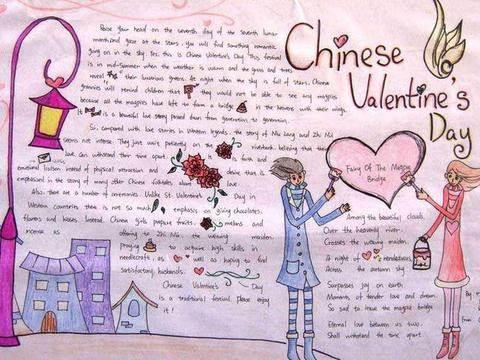 Raise your head on the seventh day of the seventh lunar
month and gaze at the stars, you will find something romantic
going on in the sky. Yes, this is Chinese Valentine's Day. This festival
is in mid-summer when the weather is warm and the grass and trees
reveal their luxurious greens. At night when the sky is full of stars, Chinese
grannies will remind children that they would not be able to see any magpies
because all the magpies have left to form a bridge in the heavens with their wings.
It is a beautiful love story passed down from generation to generation.
So, compared with love stories in Western legends, the story of Niu lang and Zhi Nu
seems not intense. They just wait patiently on the riverbank, believing that their
love can withstand time apart. firm and
emotional loyalty instead of physical interaction and desire that is
emphasised in the story of many other Chinese folktales about love.
Also, there are a number of ceremonies. Unlike St. Valentine's Day in
Western countries, there is not so much emphasis on giving chocolates,
flowers and kisses. Instead, Chinese girls prepare fruits, melons and
incense as offering to Zhi Nu, the weaving maiden,
praying to acquire high skills in
needlecraft, as well as hoping to find
satisfactory husbands.
Chinese Valentine's Day
is a traditional festival, please enjoy
it!
Chinese
Valentine's
Day
Fairy Of The Magpie
Bridge
Among the beautiful clouds,
Over the heavenly river,
Crosses the weaving maiden.
A night of rendezvous,
Across the autumn sky.
Surpasses joy on earth.
Moments of tender love and dream,
So sad to leave the magpie bridge.
Eternal love between us two,
Shall withstand the time apart.